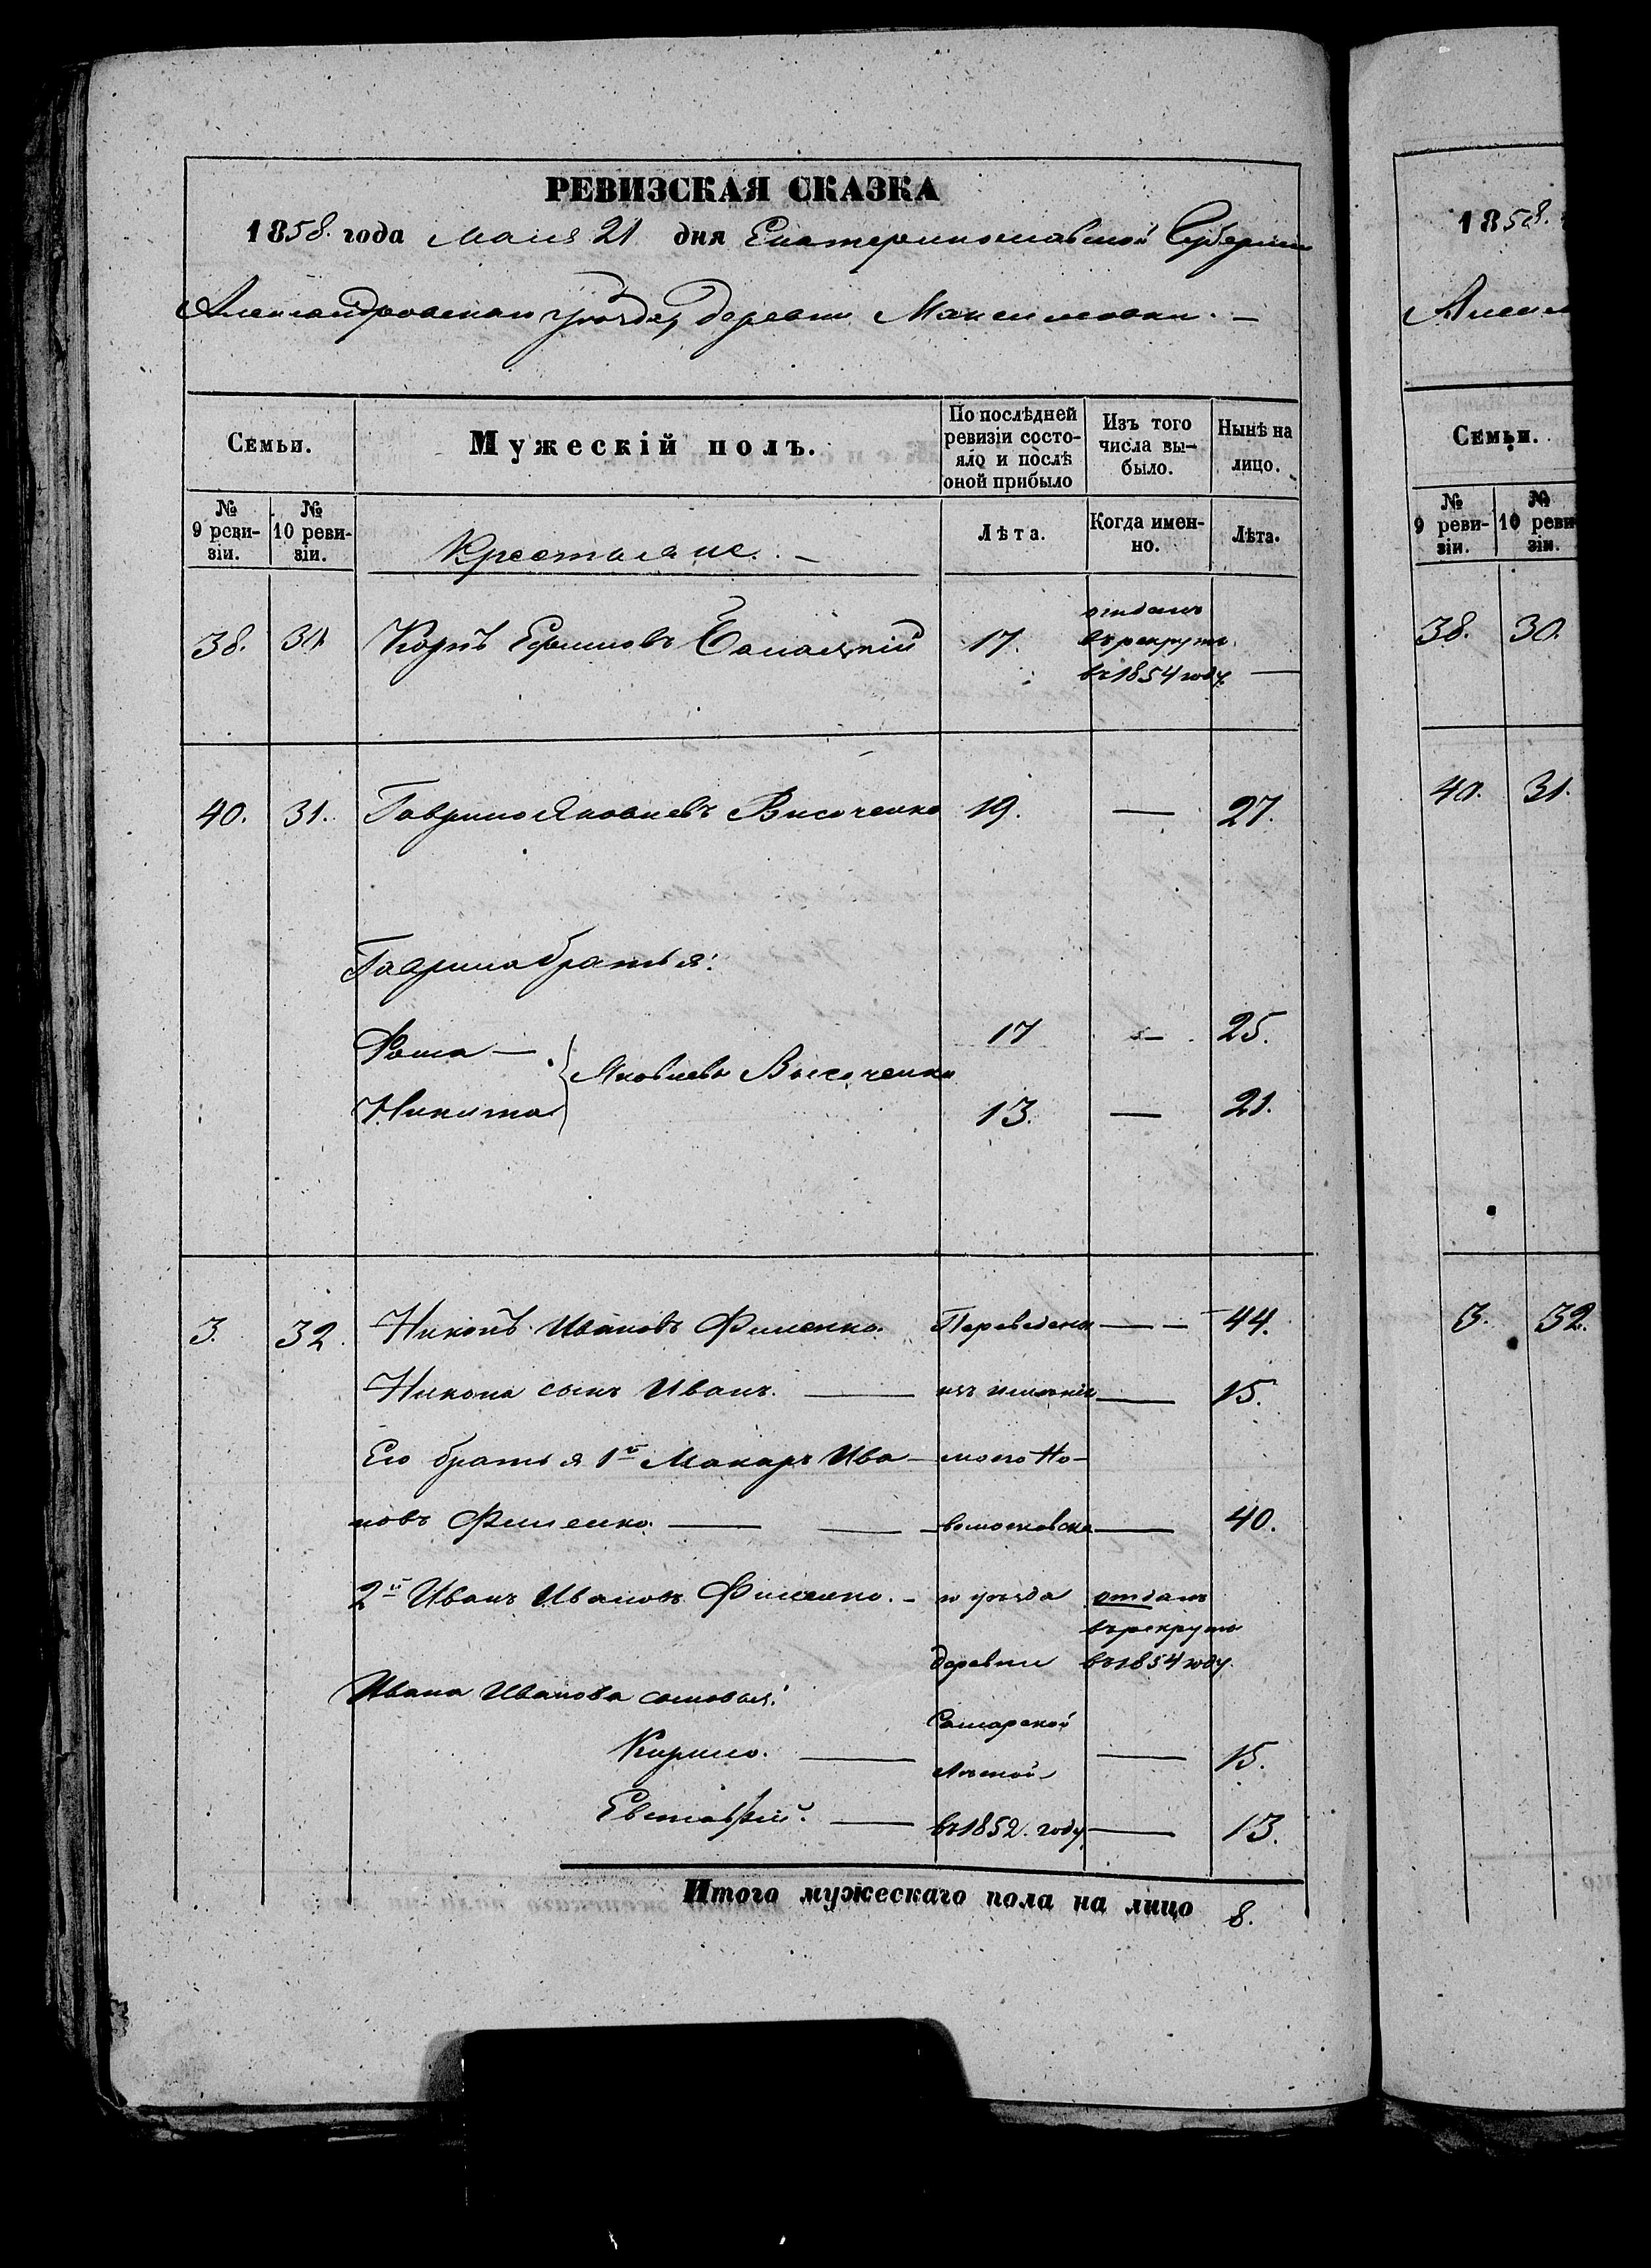 РЕВИЗСКАЯ СКАЗКА
1858. года Маия 21 дня Екатеринославской Губернии
Александровскаго уѣзда, деревни Максимовки. —
Семьи.
Мужескій полъ.
По послѣдней ревизіи состо-
яло и послѣ оной прибыло
Изъ того числа вы-
было.
Нынѣ на лицо.
№ 9 реви-
зіи.
№ 10 реви-
зіи.
Крестьяне. —
Лѣта.
Когда имен-
но.
Лѣта.
38. 30. Ефимовъ 17. отданъ
въ рекруты
въ 1854 году. —
40. 31. Гаврило Яковлевъ Височенко 19. — 27.
Гаврила братья:
Фома — 17 — 25.
Яковлевы Височенки
Никита 13. — 21.
3. 32. Никонъ Ивановъ Фименко. Переведены — — 44.
Никона сынъ Иванъ. — изъ имѣнія — 15.
Его братья 1й Макаръ Ива- моего Но-
новъ Фименко. — — вомосковска- — 40.
2й Иванъ Ивановъ Фименко. — го уѣзда отданъ
въ рекруты
деревни въ 1854 году.
Ивана Иванова сыновья:
Самарской
Кирило. — — 15.
Евстафій. — въ 1852. году — 13.
Итого мужескаго пола на лицо 8.
1858.
Семьи.
№ 9 реви-
зіи.
№ 10 реви
зіи.
38. 30.
40. 31.
3. 32.